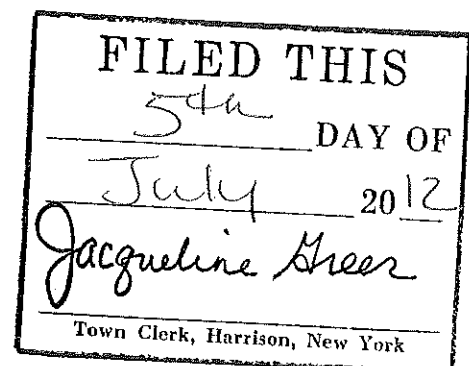 FILED THIS
5th DAY OF
July 2012
Jacqueline Greer
Town Clerk, Harrison, New York